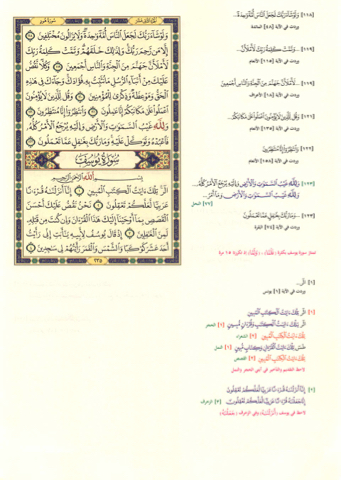 سورة هود
وَلَوْ شَآءَ رَبُّكَ لَجَعَلَ ٱلنَّاسَ أُمَّةً وَٰحِدَةً وَلَا يَزَالُونَ مُخْتَلِفِينَ ۝
إِلَّا مَن رَّحِمَ رَبُّكَ وَلِذَٰلِكَ خَلَقَهُمْ وَتَمَّتْ كَلِمَةُ رَبِّكَ
لَأَمْلَأَنَّ جَهَنَّمَ مِنَ ٱلْجِنَّةِ وَٱلنَّاسِ أَجْمَعِينَ ۝ وَكُلًّا نَّقُصُّ
عَلَيْكَ مِنْ أَنۢبَآءِ ٱلرُّسُلِ مَا نُثَبِّتُ بِهِۦ فُؤَادَكَ وَجَآءَكَ فِى هَٰذِهِ
ٱلْحَقُّ وَمَوْعِظَةٌ وَذِكْرَىٰ لِلْمُؤْمِنِينَ ۝ وَقُل لِّلَّذِينَ لَا يُؤْمِنُونَ
ٱعْمَلُوا۟ عَلَىٰ مَكَانَتِكُمْ إِنَّا عَٰمِلُونَ ۝ وَٱنتَظِرُوٓا۟ إِنَّا مُنتَظِرُونَ ۝
وَلِلَّهِ غَيْبُ ٱلسَّمَٰوَٰتِ وَٱلْأَرْضِ وَإِلَيْهِ يُرْجَعُ ٱلْأَمْرُ كُلُّهُۥ
فَٱعْبُدْهُ وَتَوَكَّلْ عَلَيْهِ وَمَا رَبُّكَ بِغَٰفِلٍ عَمَّا تَعْمَلُونَ ۝
سُورَةُ يُوسُفَ
بِسْمِ ٱللَّهِ ٱلرَّحْمَٰنِ ٱلرَّحِيمِ
الٓر تِلْكَ ءَايَٰتُ ٱلْكِتَٰبِ ٱلْمُبِينِ ۝ إِنَّآ أَنزَلْنَٰهُ قُرْءَٰنًا
عَرَبِيًّا لَّعَلَّكُمْ تَعْقِلُونَ ۝ نَحْنُ نَقُصُّ عَلَيْكَ أَحْسَنَ
ٱلْقَصَصِ بِمَآ أَوْحَيْنَآ إِلَيْكَ هَٰذَا ٱلْقُرْءَانَ وَإِن كُنتَ مِن قَبْلِهِۦ
لَمِنَ ٱلْغَٰفِلِينَ ۝ إِذْ قَالَ يُوسُفُ لِأَبِيهِ يَٰٓأَبَتِ إِنِّى رَأَيْتُ
أَحَدَ عَشَرَ كَوْكَبًا وَٱلشَّمْسَ وَٱلْقَمَرَ رَأَيْتُهُمْ لِى سَٰجِدِينَ ۝
٢٣٥
[١١٨] وَلَوْ شَآءَ رَبُّكَ لَجَعَلَ ٱلنَّاسَ أُمَّةً وَٰحِدَةً...
وردت في الآية [٤٨] المائدة
[١١٩] ...وَتَمَّتْ كَلِمَةُ رَبِّكَ لَأَمْلَأَنَّ...
وردت في الآية [١١٥] الأنعام
[١١٩] ...لَأَمْلَأَنَّ جَهَنَّمَ مِنَ ٱلْجِنَّةِ وَٱلنَّاسِ أَجْمَعِينَ
وردت في الآية [١٨] الأعراف
[١٢١] وَقُل لِّلَّذِينَ لَا يُؤْمِنُونَ ٱعْمَلُوا۟ عَلَىٰ مَكَانَتِكُمْ...
وردت في الآية [١٣٥] الأنعام
[١٢٢] وَٱنتَظِرُوٓا۟ إِنَّا مُنتَظِرُونَ
وردت في الآية [١٥٨] الأنعام
[١٢٣] وَلِلَّهِ غَيْبُ ٱلسَّمَٰوَٰتِ وَٱلْأَرْضِ وَإِلَيْهِ يُرْجَعُ ٱلْأَمْرُ كُلُّهُۥ...
وَلِلَّهِ غَيْبُ ٱلسَّمَٰوَٰتِ وَٱلْأَرْضِ وَمَآ أَمْرُ...
[٧٧] النحل
[١٢٣] ...وَمَا رَبُّكَ بِغَٰفِلٍ عَمَّا تَعْمَلُونَ
وردت في الآية [٧٤] البقرة
[١] الٓر...
وردت في الآية [١] يونس
[١] الٓر تِلْكَ ءَايَٰتُ ٱلْكِتَٰبِ ٱلْمُبِينِ
الٓر تِلْكَ ءَايَٰتُ ٱلْكِتَٰبِ وَقُرْءَانٍ مُّبِينٍ [١] الحجر
تِلْكَ ءَايَٰتُ ٱلْكِتَٰبِ ٱلْمُبِينِ [٢] الشعراء
طسٓ تِلْكَ ءَايَٰتُ ٱلْقُرْءَانِ وَكِتَابٍ مُّبِينٍ [١] النمل
تِلْكَ ءَايَٰتُ ٱلْكِتَٰبِ ٱلْمُبِينِ [٢] القصص
لاحظ التقديم والتأخير في آيتي الحجر والنمل
[٢] إِنَّآ أَنزَلْنَٰهُ قُرْءَٰنًا عَرَبِيًّا لَّعَلَّكُمْ تَعْقِلُونَ
إِنَّا جَعَلْنَٰهُ قُرْءَٰنًا عَرَبِيًّا لَّعَلَّكُمْ تَعْقِلُونَ [٣] الزخرف
لاحظ في يوسف ﴿أَنزَلْنَٰهُ﴾ وفي الزخرف ﴿جَعَلْنَٰهُ﴾